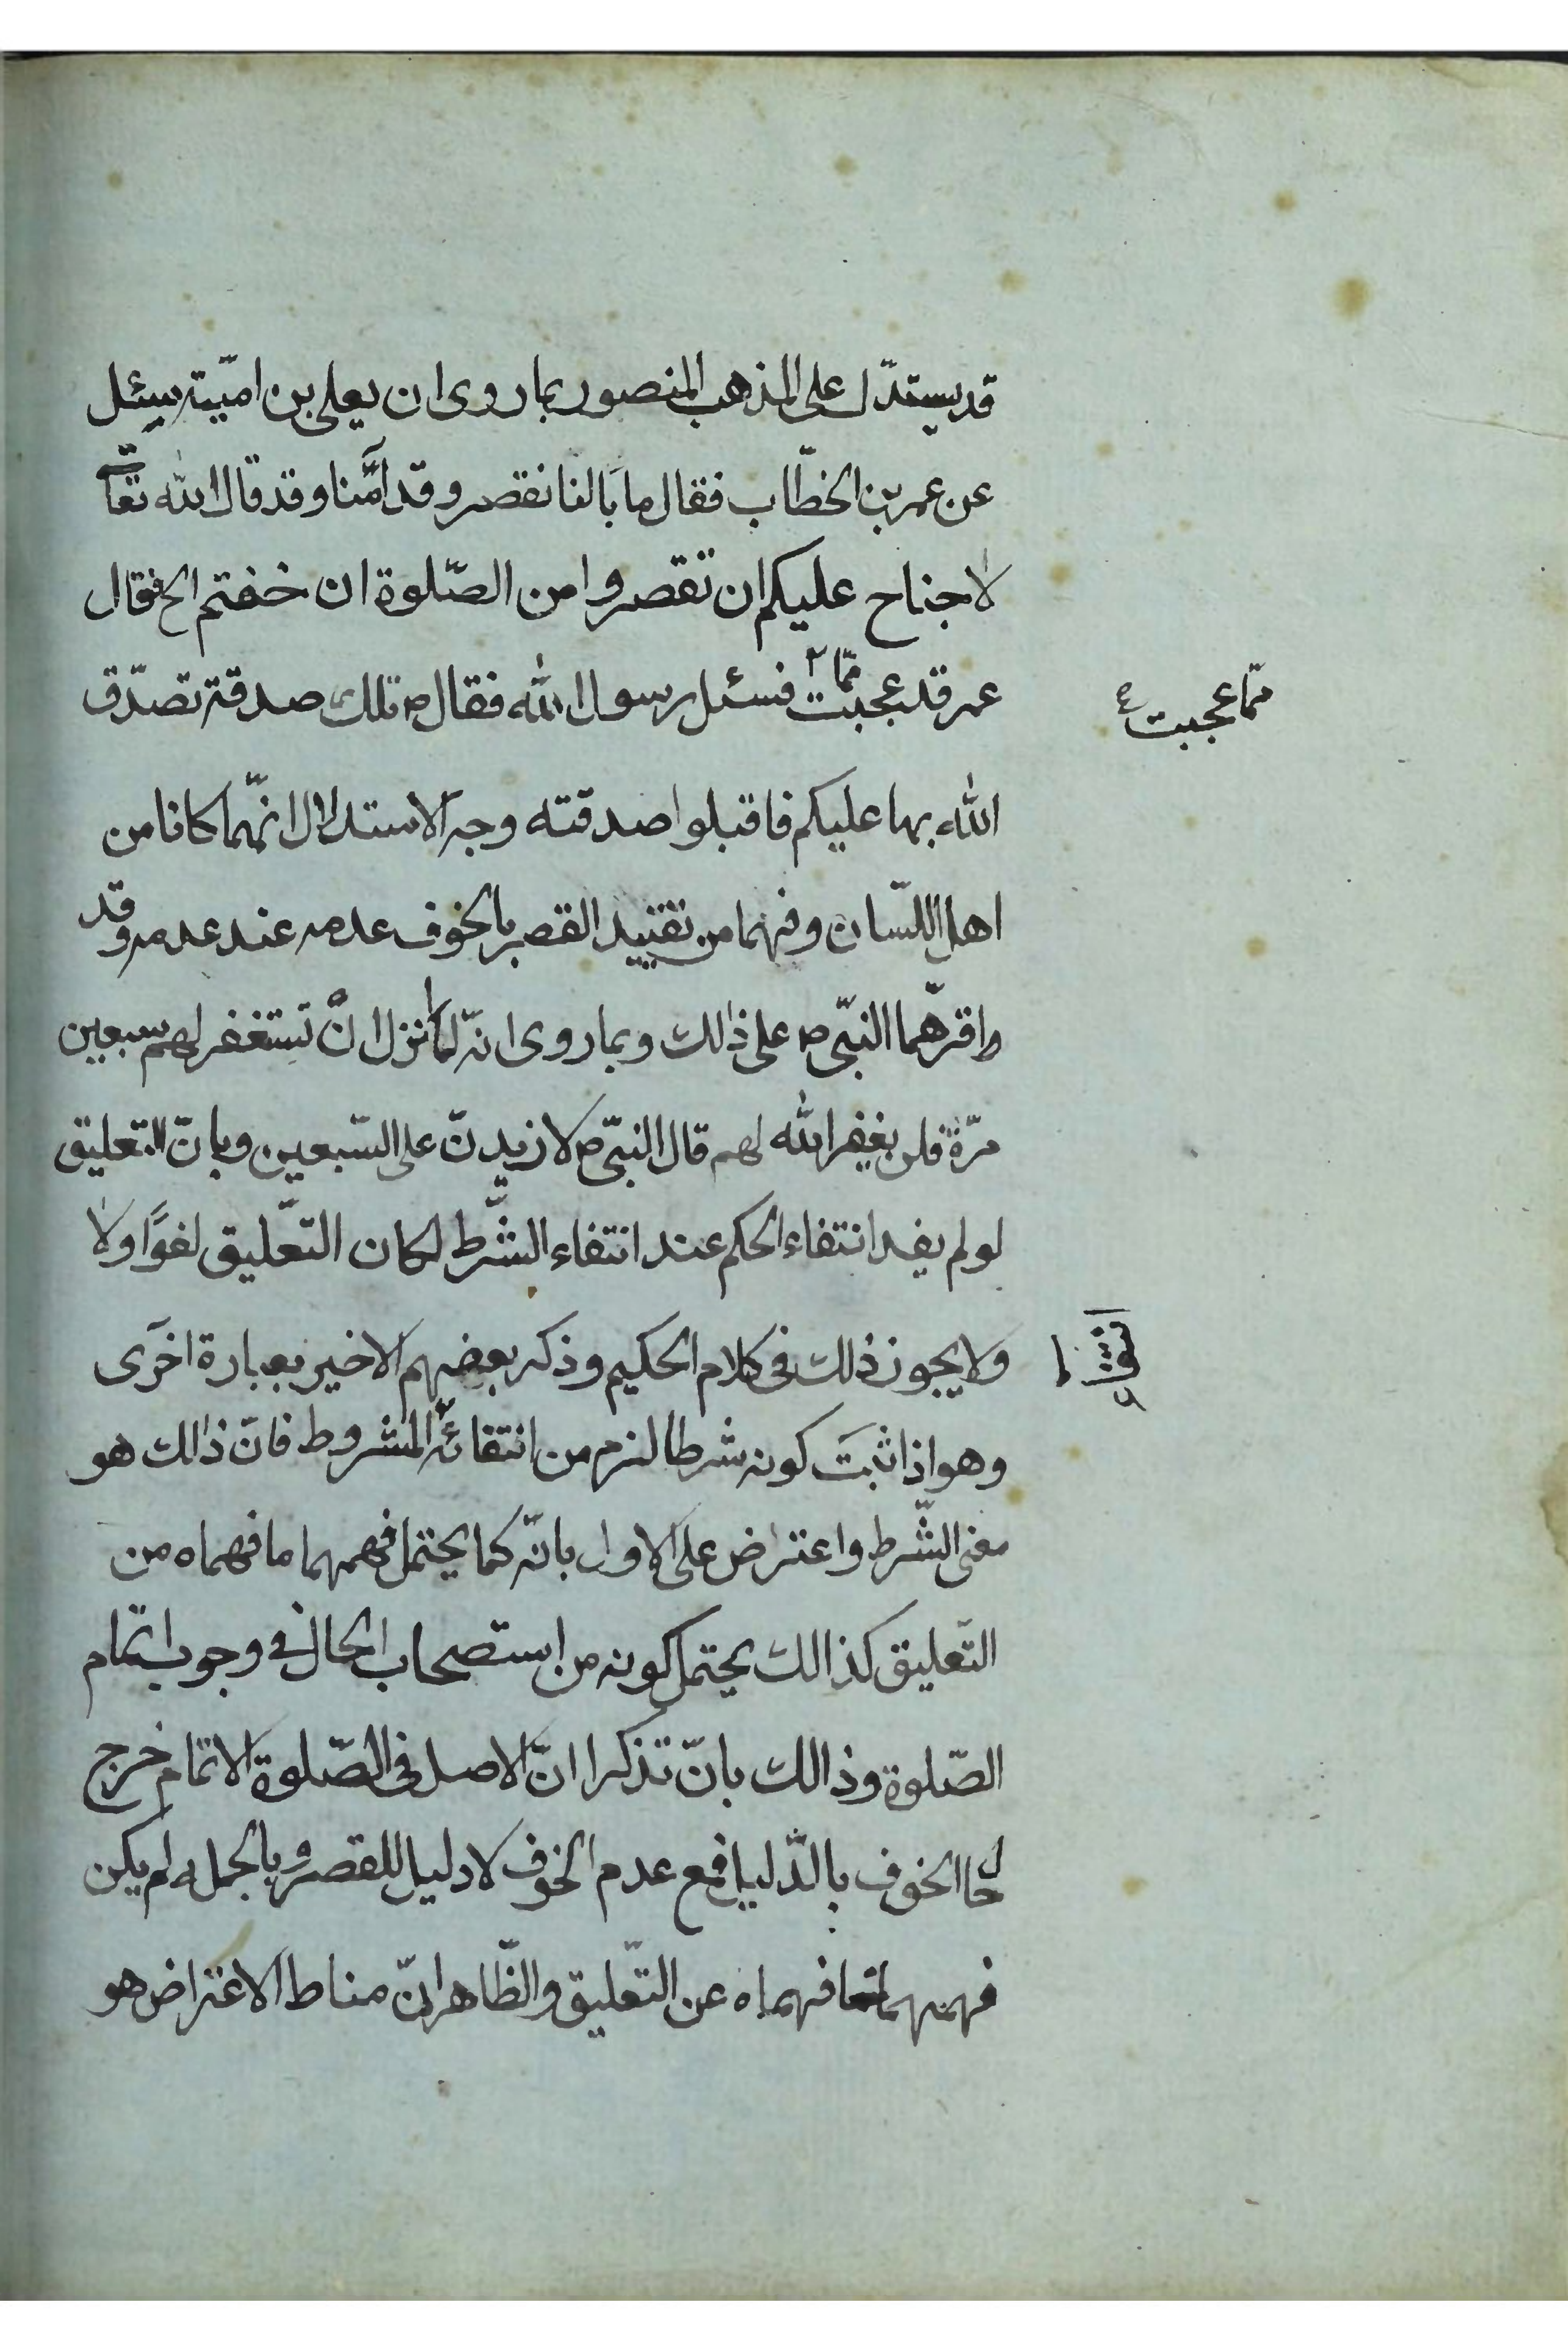 قد يستدّل على المذهب المنصور بما روى ان يعلى بن اميّة سئل
عن عمر بن الخطّاب فقال ما بالنا نقصر وقد آمنّا وقد قال الله تعا
لا جناح عليكم ان تقصروا من الصّلوة ان خفتم الخ فقال
عمر قد عجبت ممّا فسئل رسول الله فقال ص تلك صدقة تصدّق
ممّا عجبت
الله بها عليكم فاقبلوا صدقته وجه الاستدلال انّهما كانا من
اهل اللّسان وفهما من تقييد القصر بالخوف عدمه عند عدمه وقد
واقرّهما النبّى ص على ذالك وبما روى انّه لمّا نزل انّ تستغفر لهم سبعين
مرّة فلن يغفر الله لهم قال النبّى ص لازيدنّ على السّبعين وبانّ التعليق
لو لم يفد انتفاء الحكم عند انتفاء الشّرط لكان التّعليق لغوًا ولا
ولا يجوز ذلك فى كلام الحكيم وذكر بعضهم الاخير بعبارة اخرى
وهو اذا ثبت كونه شرطا لزم من انتفائه المشروط فانّ ذالك هو
معنى الشّرط واعتراض على الاول بانّه كما يحتمل فهمهما ما فهماه من
التّعليق كذالك يحتمل كونه من استصحاب الحال فى وجوب اتمام
الصّلوة وذالك بانّ تذكرا انّ الاصل فى الصّلوة الاتمام خرج
حال الخوف بالدّليل فمع عدم الخوف لا دليل للقصر وبالجمله لم يكن
فهمهما فهماه عن التّعليق والظّاهر انّ مناط الاعتراض هو